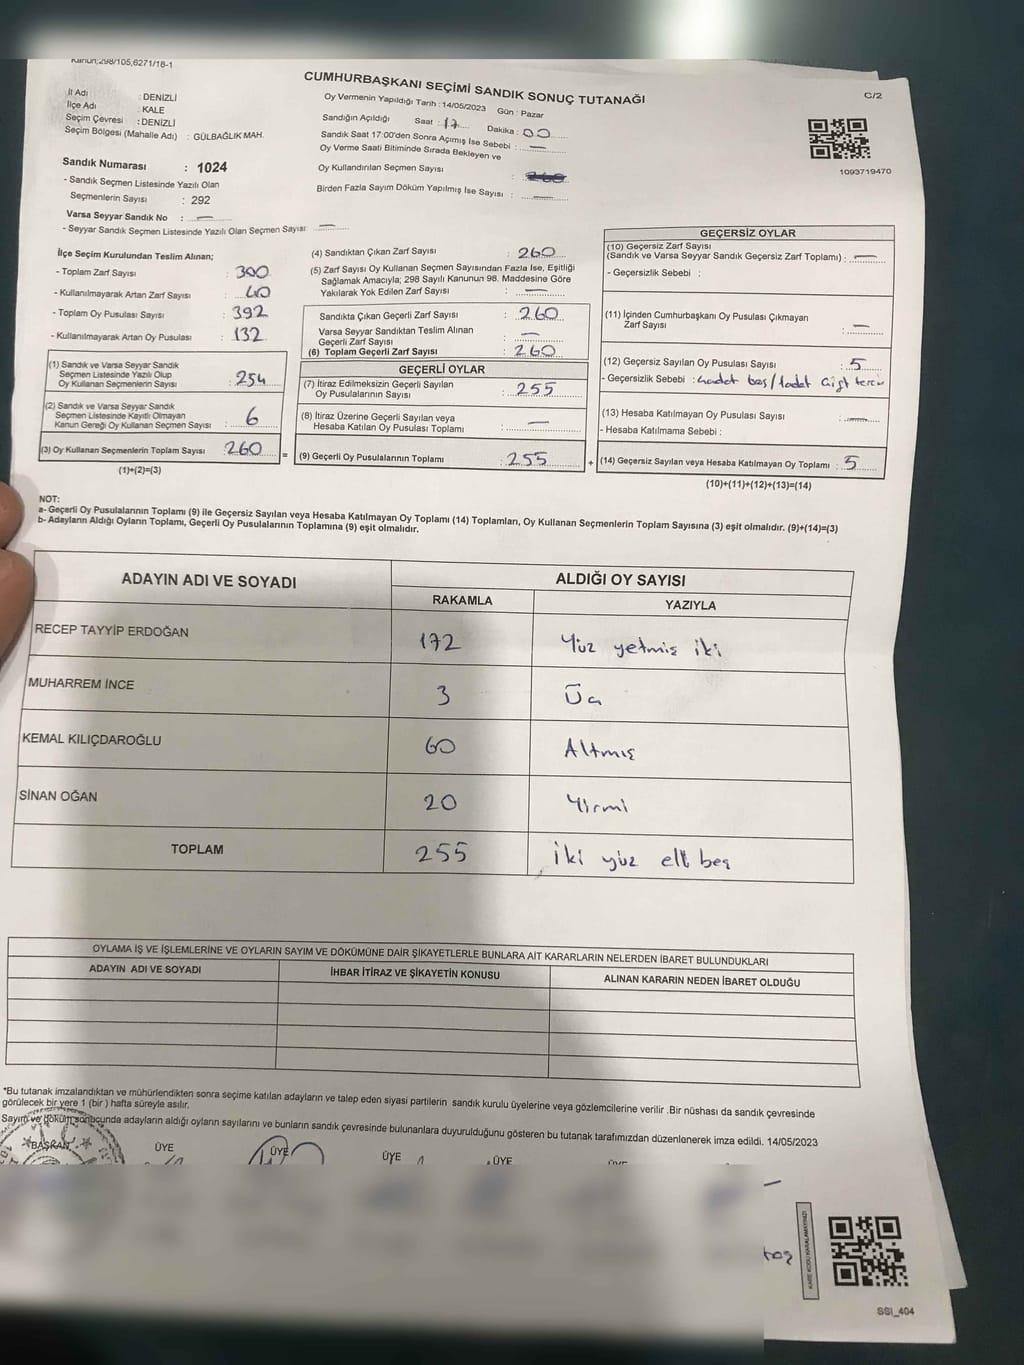 Kanun;298/105,6271/18-1
CUMHURBAŞKANI SEÇİMİ SANDIK SONUÇ TUTANAĞI
C/2
İl Adı : DENİZLİ
İlçe Adı : KALE
Seçim Çevresi : DENİZLİ
Seçim Bölgesi (Mahalle Adı) : GÜLBAĞLIK MAH.
Oy Vermenin Yapıldığı Tarih : 14/05/2023 Gün : Pazar
Sandığın Açıldığı Saat : 17 Dakika : 00
Sandık Saat 17:00'den Sonra Açılmış İse Sebebi : —
Oy Verme Saati Bitiminde Sırada Bekleyen ve
Oy Kullandırılan Seçmen Sayısı :
Birden Fazla Sayım Döküm Yapılmış İse Sayısı : —
1093719470
Sandık Numarası : 1024
- Sandık Seçmen Listesinde Yazılı Olan
Seçmenlerin Sayısı : 292
Varsa Seyyar Sandık No : —
- Seyyar Sandık Seçmen Listesinde Yazılı Olan Seçmen Sayısı: —
İlçe Seçim Kurulundan Teslim Alınan;
- Toplam Zarf Sayısı : 300
- Kullanılmayarak Artan Zarf Sayısı : 40
- Toplam Oy Pusulası Sayısı : 392
- Kullanılmayarak Artan Oy Pusulası : 132
(1) Sandık ve Varsa Seyyar Sandık
Seçmen Listesinde Yazılı Olup
Oy Kullanan Seçmenlerin Sayısı : 254
(2) Sandık ve Varsa Seyyar Sandık
Seçmen Listesinde Kayıtlı Olmayan
Kanun Gereği Oy Kullanan Seçmen Sayısı : 6
(3) Oy Kullanan Seçmenlerin Toplam Sayısı : 260
(1)+(2)=(3)
(4) Sandıktan Çıkan Zarf Sayısı : 260
(5) Zarf Sayısı Oy Kullanan Seçmen Sayısından Fazla İse, Eşitliği
Sağlamak Amacıyla; 298 Sayılı Kanunun 98. Maddesine Göre
Yakılarak Yok Edilen Zarf Sayısı : —
Sandıkta Çıkan Geçerli Zarf Sayısı : 260
Varsa Seyyar Sandıktan Teslim Alınan
Geçerli Zarf Sayısı : —
(6) Toplam Geçerli Zarf Sayısı : 260
GEÇERLİ OYLAR
(7) İtiraz Edilmeksizin Geçerli Sayılan
Oy Pusulalarının Sayısı : 255
(8) İtiraz Üzerine Geçerli Sayılan veya
Hesaba Katılan Oy Pusulası Toplamı : —
= (9) Geçerli Oy Pusulalarının Toplamı : 255
GEÇERSİZ OYLAR
(10) Geçersiz Zarf Sayısı
(Sandık ve Varsa Seyyar Sandık Geçersiz Zarf Toplamı) : —
- Geçersizlik Sebebi :
(11) İçinden Cumhurbaşkanı Oy Pusulası Çıkmayan
Zarf Sayısı : —
(12) Geçersiz Sayılan Oy Pusulası Sayısı : 5
- Geçersizlik Sebebi :
(13) Hesaba Katılmayan Oy Pusulası Sayısı : —
- Hesaba Katılmama Sebebi :
+ (14) Geçersiz Sayılan veya Hesaba Katılmayan Oy Toplamı : 5
(10)+(11)+(12)+(13)=(14)
NOT:
a- Geçerli Oy Pusulalarının Toplamı (9) ile Geçersiz Sayılan veya Hesaba Katılmayan Oy Toplamı (14) Toplamları, Oy Kullanan Seçmenlerin Toplam Sayısına (3) eşit olmalıdır. (9)+(14)=(3)
b- Adayların Aldığı Oyların Toplamı, Geçerli Oy Pusulalarının Toplamına (9) eşit olmalıdır.
ADAYIN ADI VE SOYADI
ALDIĞI OY SAYISI
RAKAMLA YAZIYLA
RECEP TAYYİP ERDOĞAN 172 Yüz yetmiş iki
MUHARREM İNCE 3 Üç
KEMAL KILIÇDAROĞLU 60 Altmış
SİNAN OĞAN 20 Yirmi
TOPLAM 255 iki yüz elli beş
OYLAMA İŞ VE İŞLEMLERİNE VE OYLARIN SAYIM VE DÖKÜMÜNE DAİR ŞİKAYETLERLE BUNLARA AİT KARARLARIN NELERDEN İBARET BULUNDUKLARI
ADAYIN ADI VE SOYADI İHBAR İTİRAZ VE ŞİKAYETİN KONUSU ALINAN KARARIN NEDEN İBARET OLDUĞU
*Bu tutanak imzalandıktan ve mühürlendikten sonra seçime katılan adayların ve talep eden siyasi partilerin sandık kurulu üyelerine veya gözlemcilerine verilir .Bir nüshası da sandık çevresinde
görülecek bir yere 1 (bir ) hafta süreyle asılır.
Sayım ve döküm sonucunda adayların aldığı oyların sayılarını ve bunların sandık çevresinde bulunanlara duyurulduğunu gösteren bu tutanak tarafımızdan düzenlenerek imza edildi. 14/05/2023
BAŞKAN ÜYE ÜYE ÜYE ÜYE
KARE KODU KARALAMAYINIZ!
SSI_404